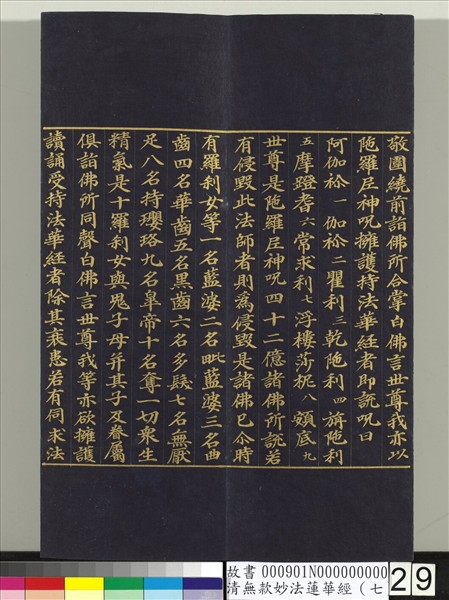 敬圍繞前詣佛所合掌白佛言世尊我亦以
陁羅尼神呪擁護持法華經者即說呪曰
阿伽袮一伽袮二瞿利三乾陁利四旃陁利
五摩蹬耆六常求利七浮樓莎柅八頞底九
世尊是陁羅尼神呪四十二億諸佛所說若
有侵毀此法師者則為侵毀是諸佛已尒時
有羅刹女等一名藍婆二名毗藍婆三名曲
齒四名華齒五名黑齒六名多髮七名無厭
足八名持瓔珞九名睪帝十名奪一切衆生
精氣是十羅刹女與鬼子母并其子及眷屬
俱詣佛所同聲白佛言世尊我等亦欲擁護
讀誦受持法華經者除其衰患若有伺求法
故書 000901N000000000
清無款妙法蓮華經(七
29